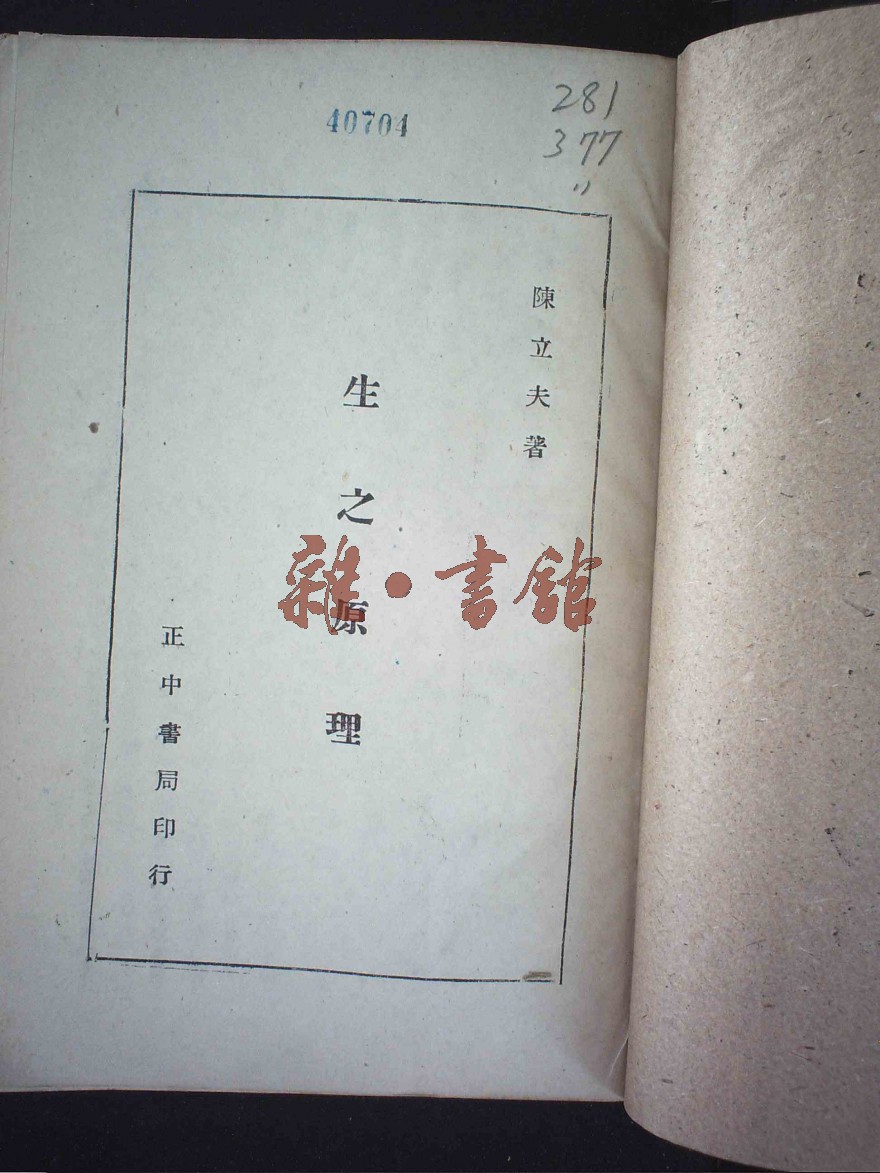 40704
281
377
〃
陳立夫著
生之原理
雜·書館
正中書局印行